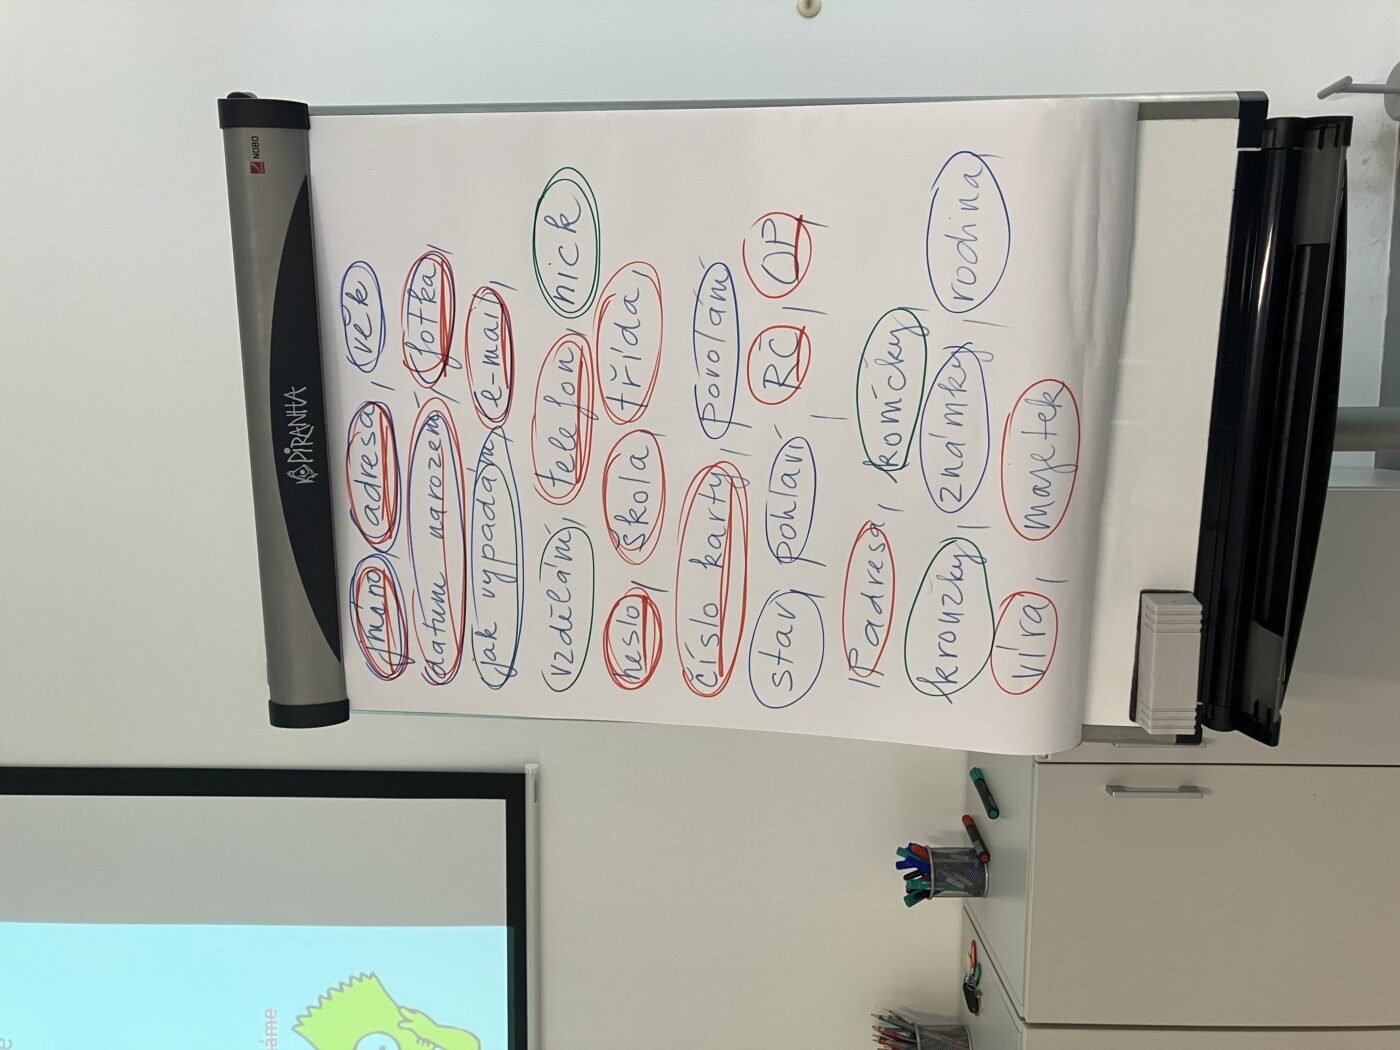 NOBO
PIRANHA
jméno, adresa, věk,
datum narození, fotka,
jak vypadám, e-mail,
vzdělání, telefon, nick
heslo, škola, třída,
číslo karty, povolání
stav, pohlaví, RČ, OP,
IP adresa, koníčky,
kroužky, známky, rodina,
víra, majetek
áme